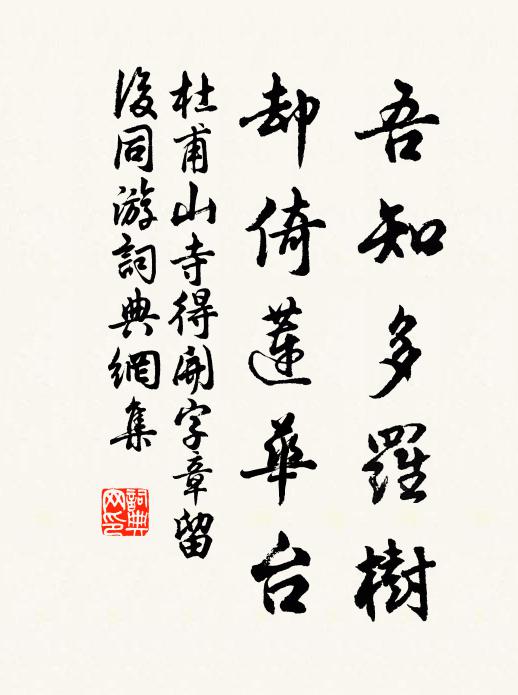 吾知多羅樹
却倚蓮華台
杜甫山寺得開字章留
後同游詞典網集
詞典网印